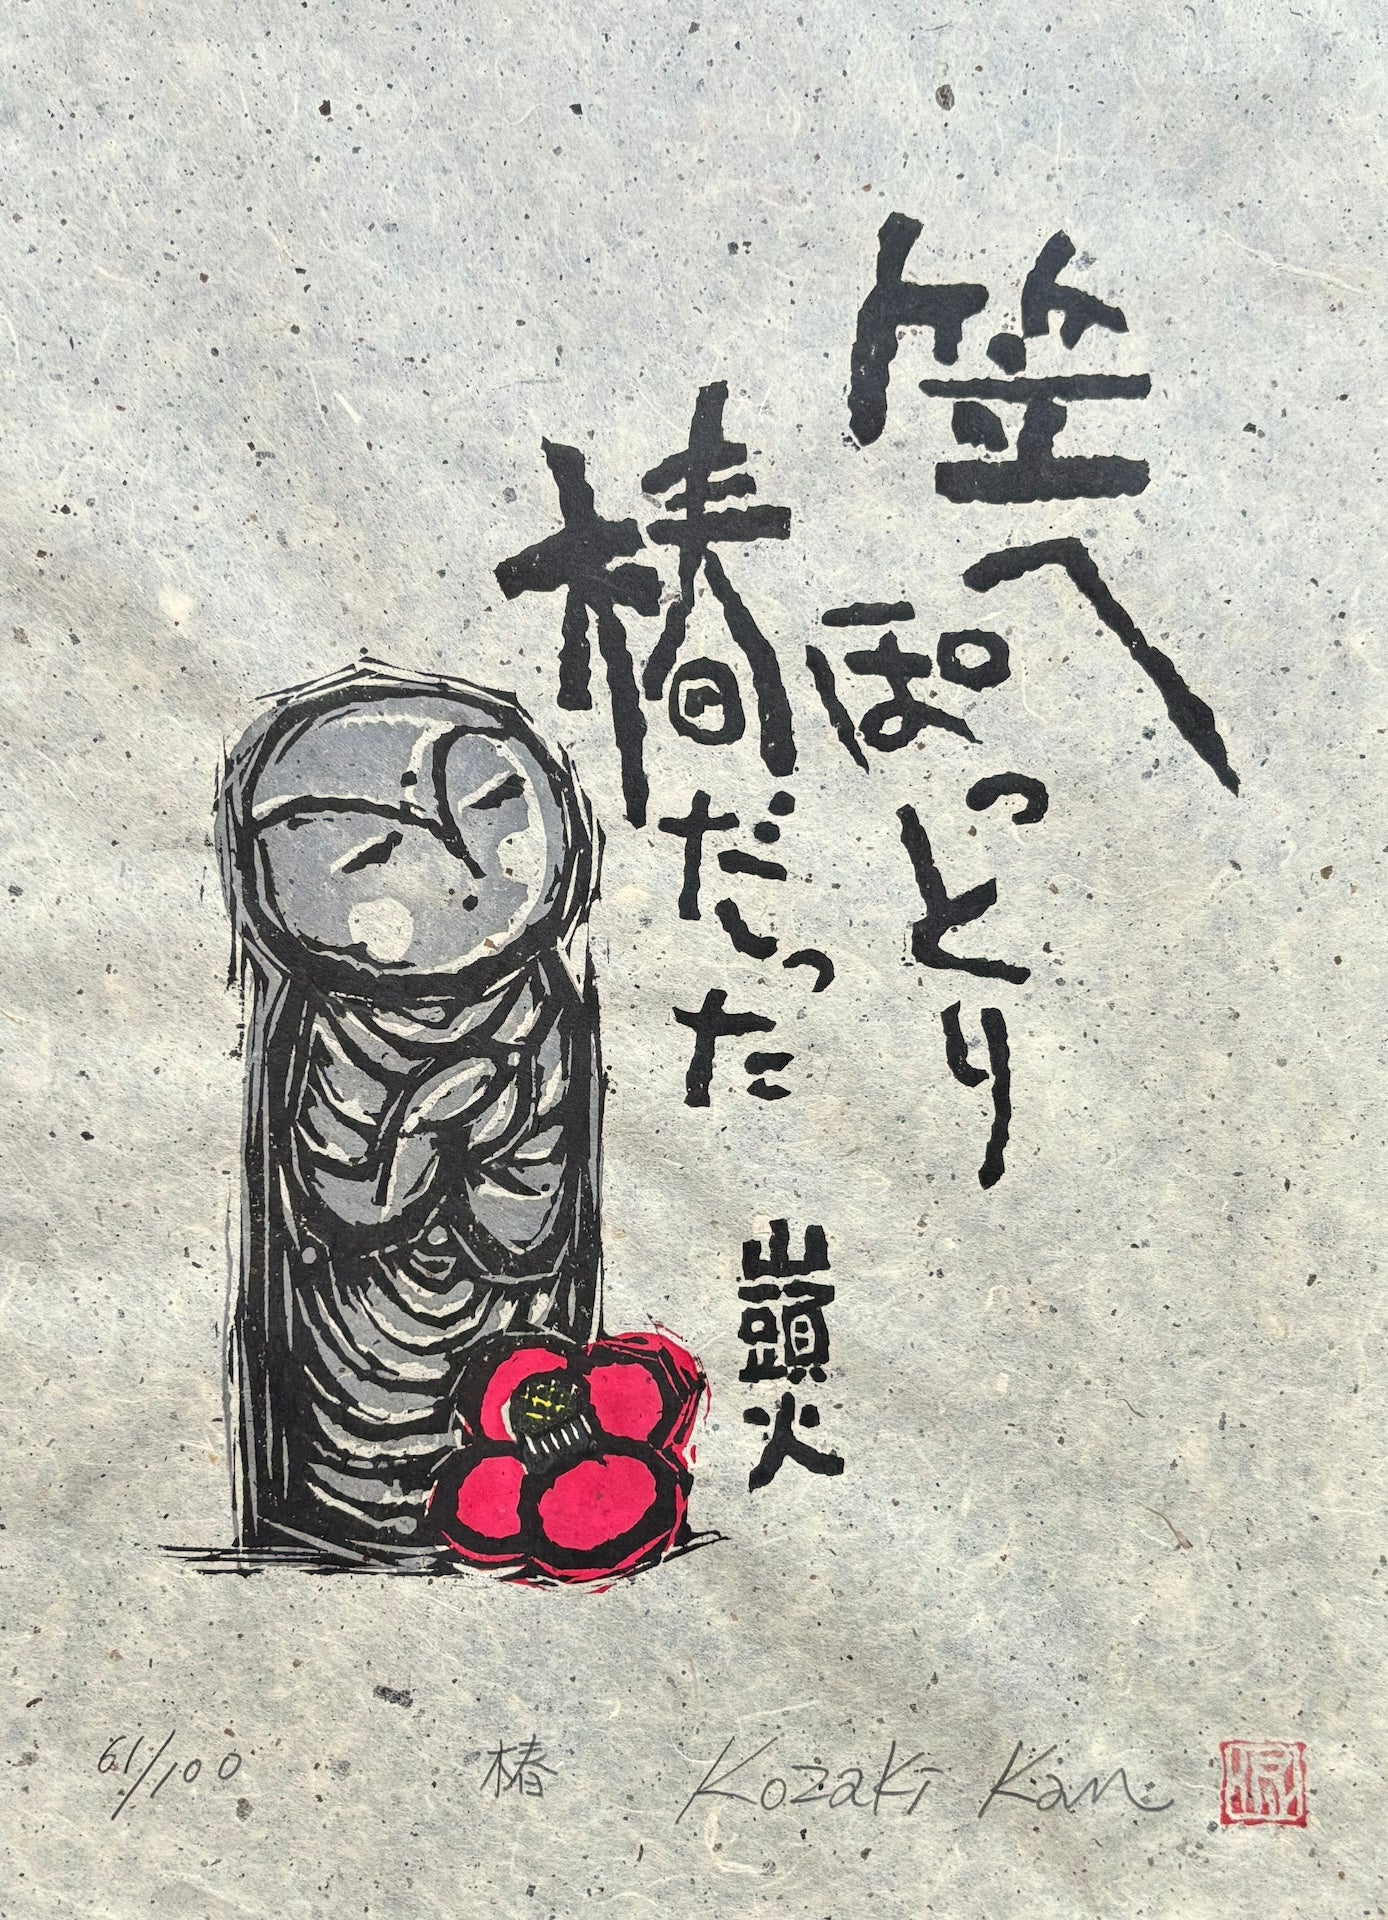 笠へ
ぽっとり
椿
だった
山頭火
61/100 椿 Kozaki Kan